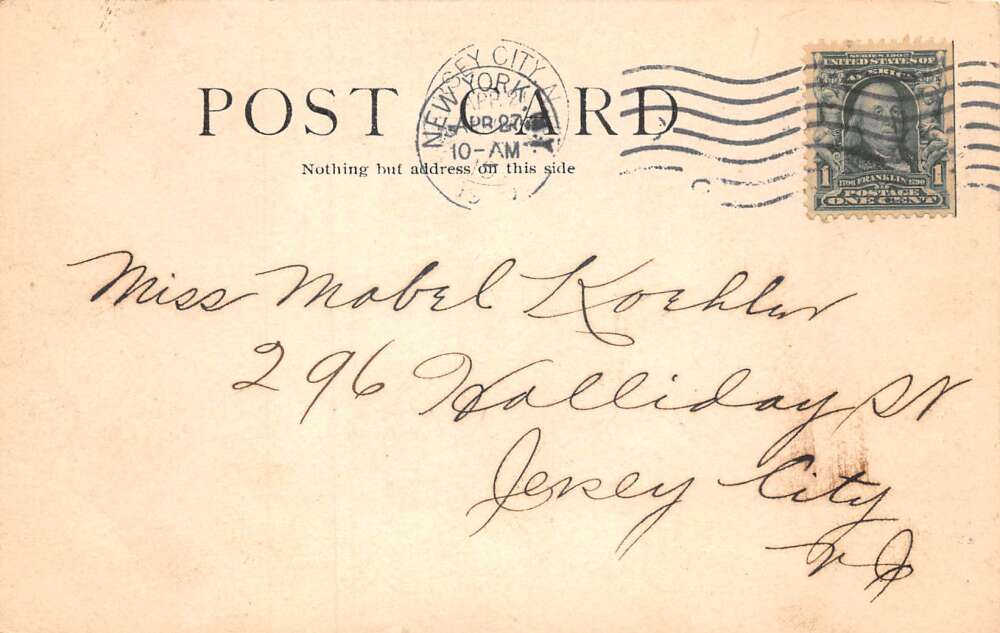 POST CARD
Nothing but address on this side
JERSEY CITY, N.
NEW YORK, N.Y.
APR 27
10-AM
SERIES 1902
UNITED STATES OF
AMERICA
1 1706 FRANKLIN 1790 1
POSTAGE
ONE CENT
Miss Mabel Koehler
296 Halliday St
Jersey City
N J